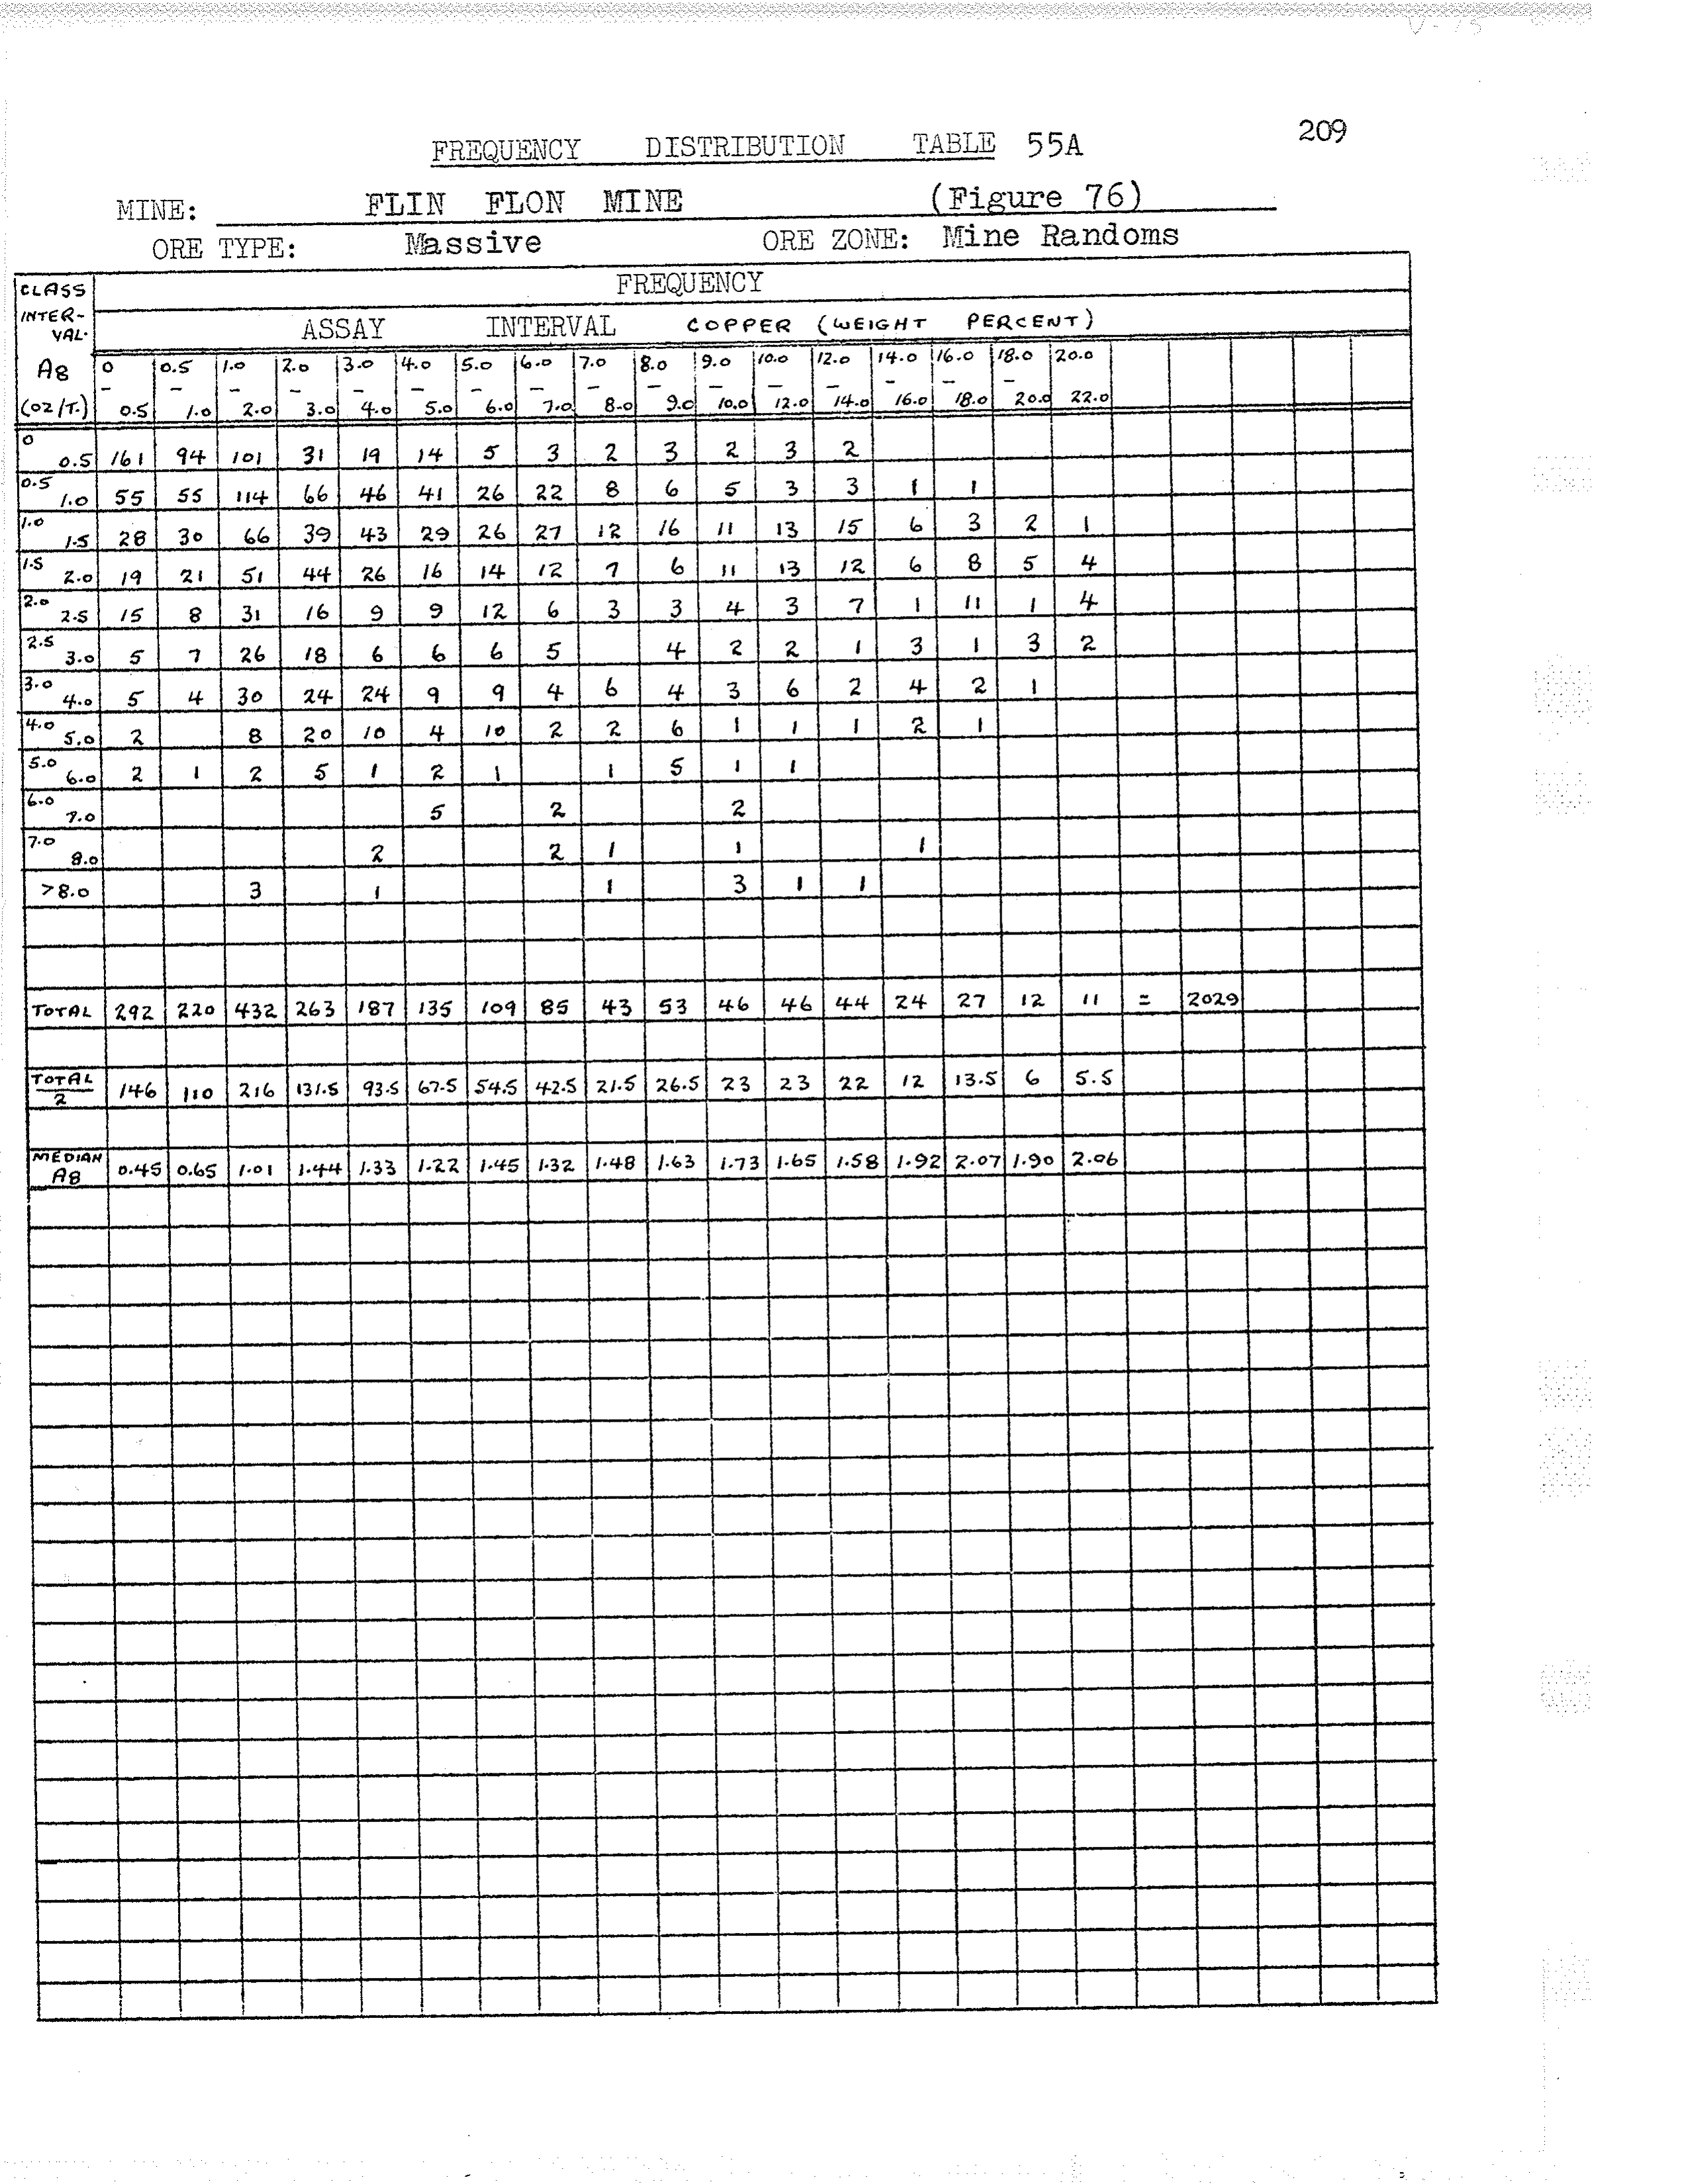 209
FREQUENCY DISTRIBUTION TABLE 55A
MINE: FLIN FLON MINE (Figure 76)
ORE TYPE: Massive ORE ZONE: Mine Randoms
CLASS INTER- VAL. FREQUENCY
ASSAY INTERVAL COPPER (WEIGHT PERCENT)
Ag 0 0.5 1.0 2.0 3.0 4.0 5.0 6.0 7.0 8.0 9.0 10.0 12.0 14.0 16.0 18.0 20.0
- - - - - - - - - - - - - - - -
(OZ/T.) 0.5 1.0 2.0 3.0 4.0 5.0 6.0 7.0 8.0 9.0 10.0 12.0 14.0 16.0 18.0 20.0 22.0
0 0.5 161 94 101 31 19 14 5 3 2 3 2 3 2
0.5 1.0 55 55 114 66 46 41 26 22 8 6 5 3 3 1 1
1.0 1.5 28 30 66 39 43 29 26 27 12 16 11 13 15 6 3 2 1
1.5 2.0 19 21 51 44 26 16 14 12 7 6 11 13 12 6 8 5 4
2.0 2.5 15 8 31 16 9 9 12 6 3 3 4 3 7 1 11 1 4
2.5 3.0 5 7 26 18 6 6 6 5 4 2 2 1 3 1 3 2
3.0 4.0 5 4 30 24 24 9 9 4 6 4 3 6 2 4 2 1
4.0 5.0 2 8 20 10 4 10 2 2 6 1 1 1 2 1
5.0 6.0 2 1 2 5 1 2 1 1 5 1 1
6.0 7.0 5 2 2
7.0 8.0 2 2 1 1 1
>8.0 3 1 1 3 1 1
TOTAL 292 220 432 263 187 135 109 85 43 53 46 46 44 24 27 12 11 = 2029
TOTAL
2 146 110 216 131.5 93.5 67.5 54.5 42.5 21.5 26.5 23 23 22 12 13.5 6 5.5
MEDIAN
Ag 0.45 0.65 1.01 1.44 1.33 1.22 1.45 1.32 1.48 1.63 1.73 1.65 1.58 1.92 2.07 1.90 2.06